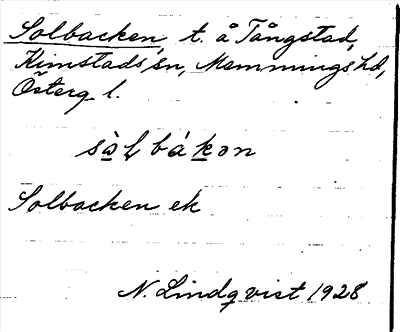 Solbacken, t. å Tångstad,
Kimstads sn, Memmings hd,
Österg. l.
sòɭbákən
Solbacken ek
N. Lindqvist 1928